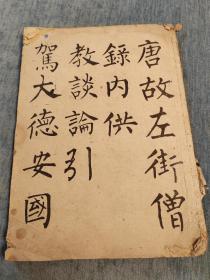 唐故左街僧
錄内供
教談論引
駕大德安國